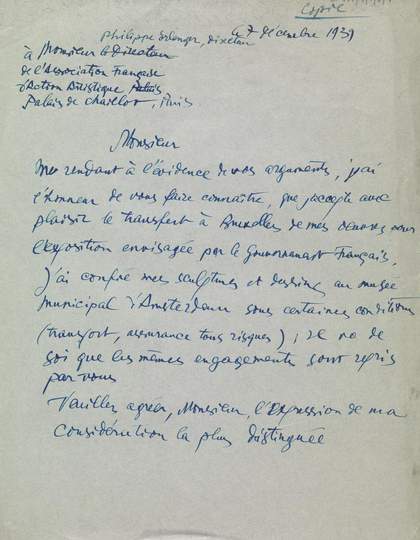 Copie
Philippe Erlanger, directeur le 7 décembre 1939
à Monsieur le Directeur
de l'Association Française
d'Action Artistique Palais
Palais de Chaillot, Paris
Monsieur
Me rendant à l'évidence de vos arguments, j'ai
l'honneur de vous faire connaître, que j'accepte avec
plaisir le transfert à Bruxelles de mes oeuvres pour
l'exposition envisagée par le Gouvernement Français.
J'ai confié mes sculptures et dessins au musée
municipal d'Amsterdam sous certaines conditions
(transport, assurance tous risques) ; il va de
soi que les mêmes engagements sont repris
par vous
Veuillez agréer, Monsieur, l'expression de ma
considération la plus distinguée